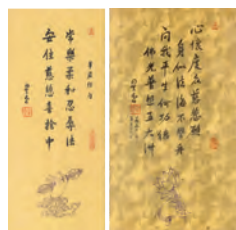 華嚴經句
常樂柔和忍辱法
安住慈悲喜捨中
心懷度众慈悲願
身似法海不繫舟
問我平生何功德
佛光普照五大洲